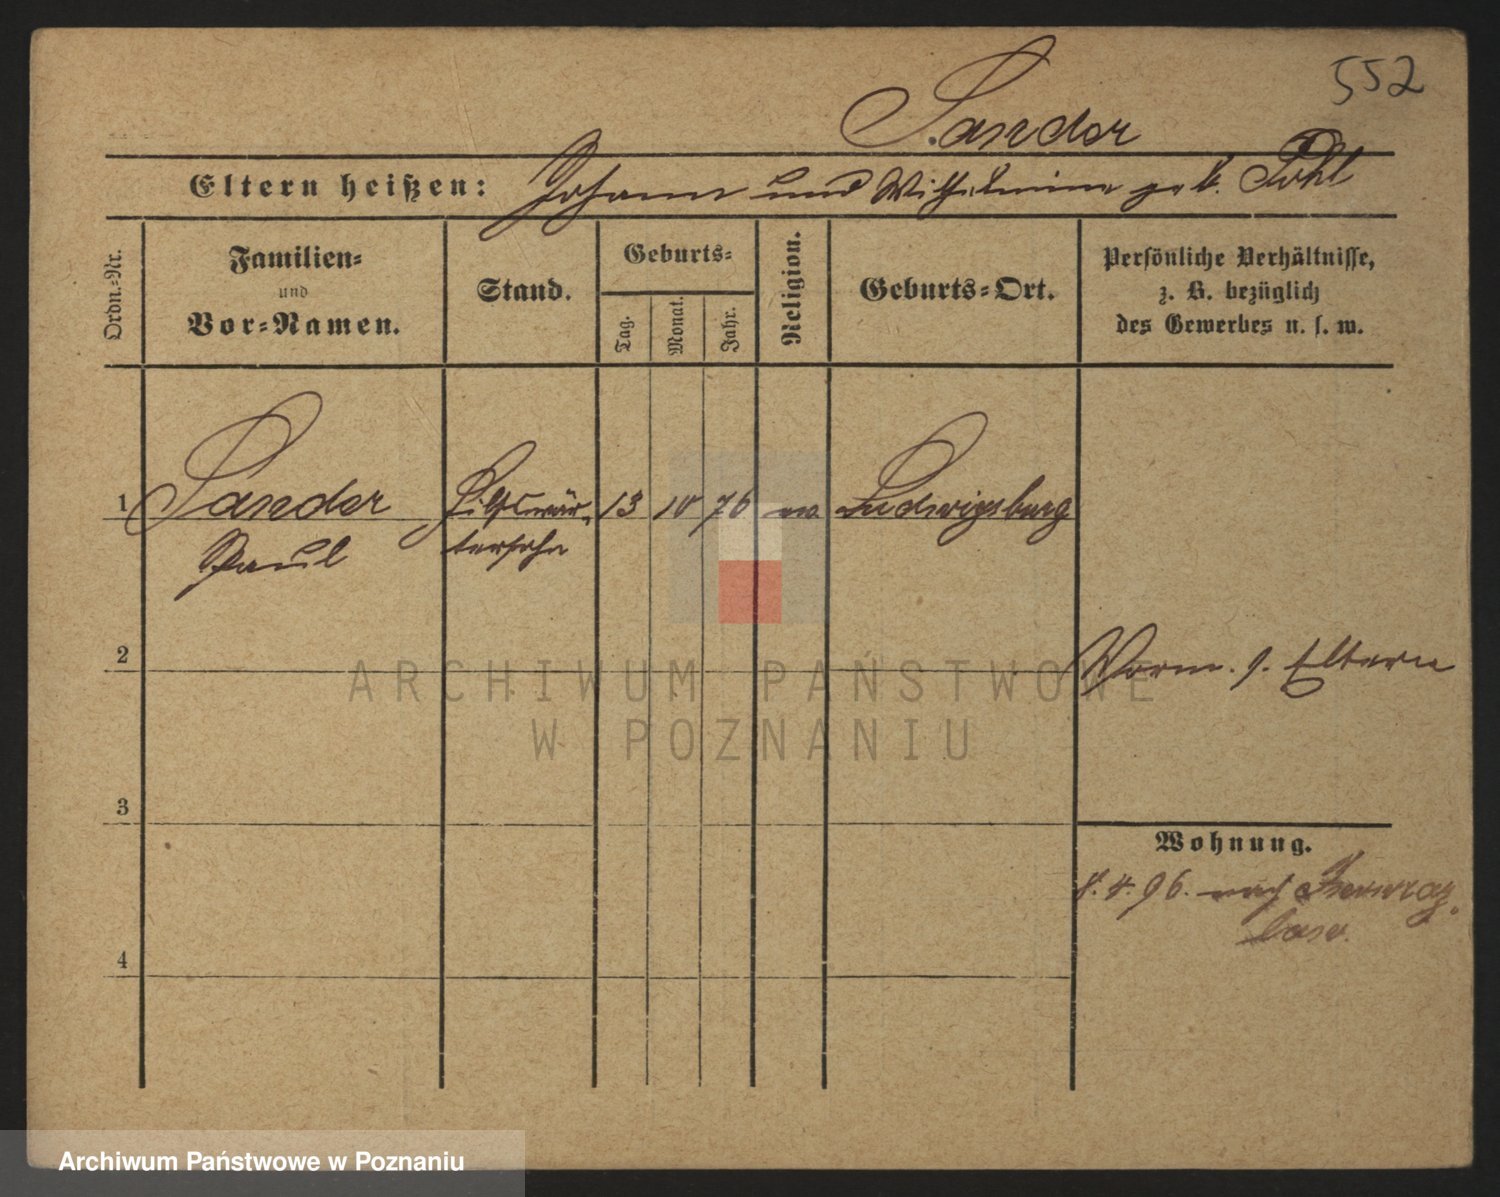 552
Sander
Eltern heißen: Johann und Wilhelmine geb. Pohl
Ordn.-Nr.
Familien-
und
Vor-Namen.
Stand.
Geburts-
Tag.
Monat.
Jahr.
Religion.
Geburts-Ort.
Persönliche Verhältnisse,
z. B. bezüglich
des Gewerbes u. s. w.
1 Sander Hilfswär- 13 10 76 ev Ludwigsburg
Paul tersohn
2
Vorm. s. Eltern
3
Wohnung.
8.4.96. nach
4
ARCHIWUM PAŃSTWOWE
W POZNANIU
Archiwum Państwowe w Poznaniu